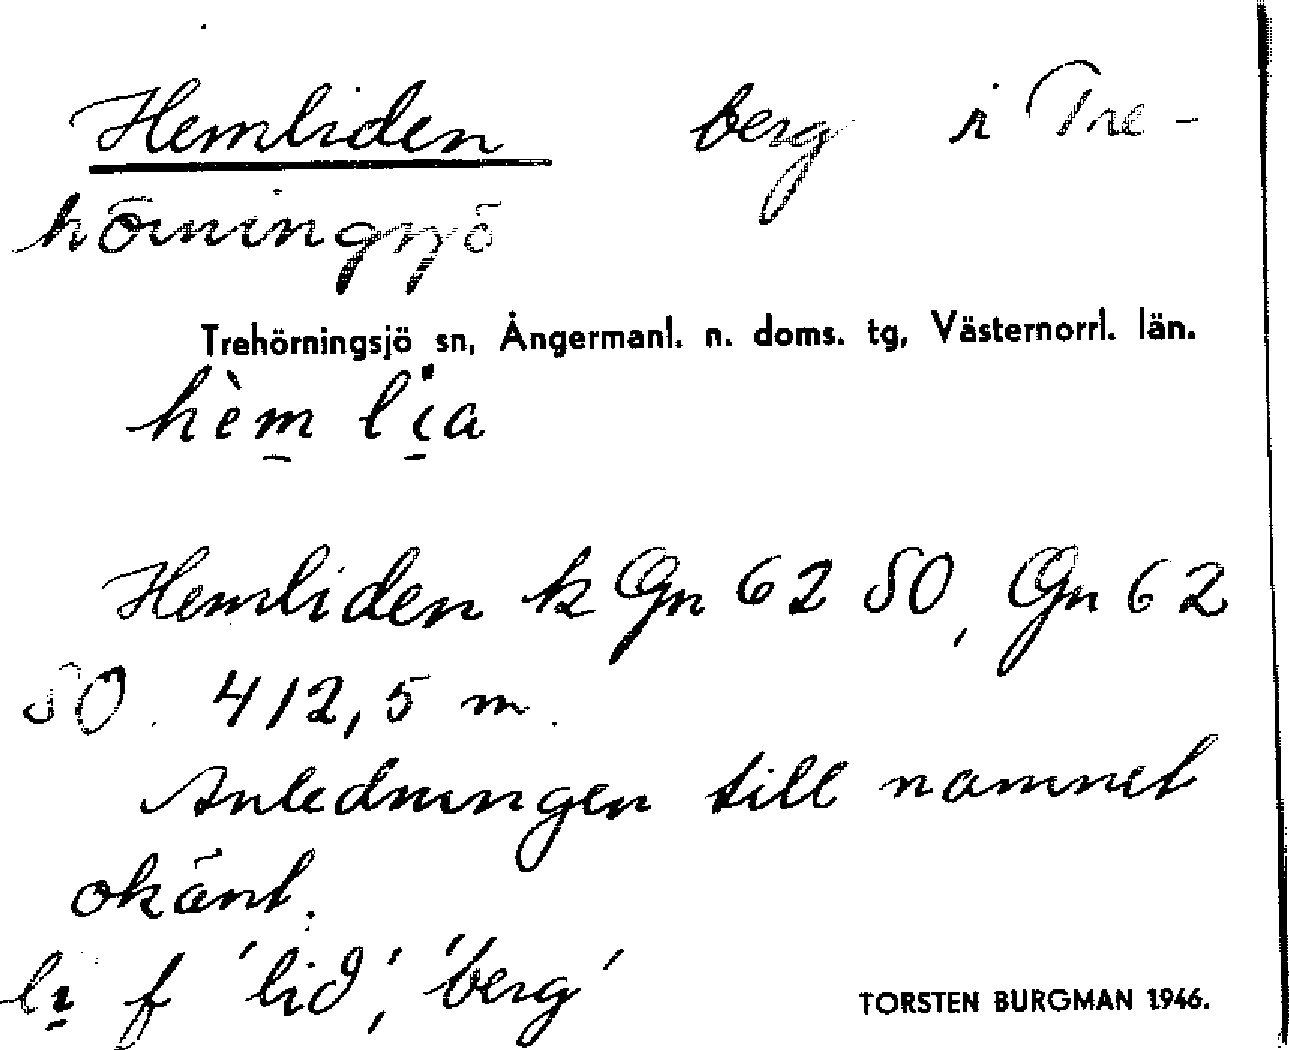 Hemliden berg i Tre-
hörningsjö
Trehörningsjö sn, Ångermanl. n. doms. tg, Västernorrl. län.
hèm̠ li̠a
Hemliden k Gn 62 SO, Gn 62
SO. 412,5 m.
Anledningen till namnet
okänt.
li̠ f 'lid', 'berg'
TORSTEN BURGMAN 1946.